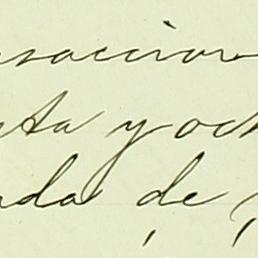 saccion
sta y och
nda de